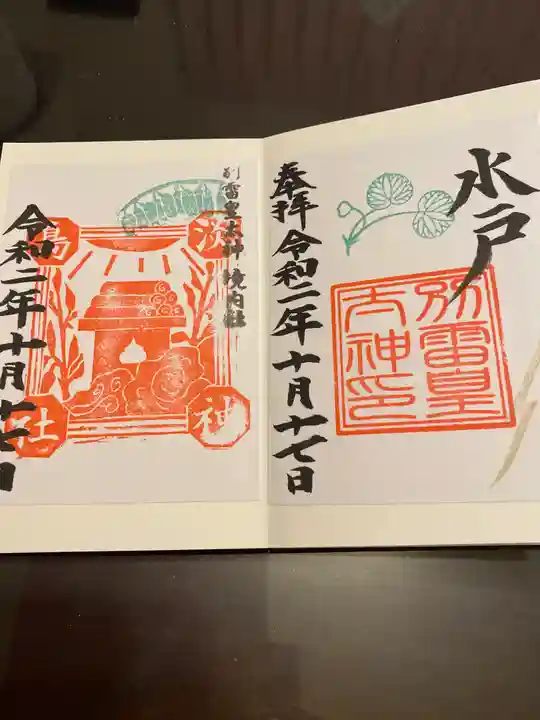 水戸
奉拝 令和二年十月十七日
別雷皇
太神印
別雷皇太神 境内社
淡
島
神
社
令和二年十月十七日